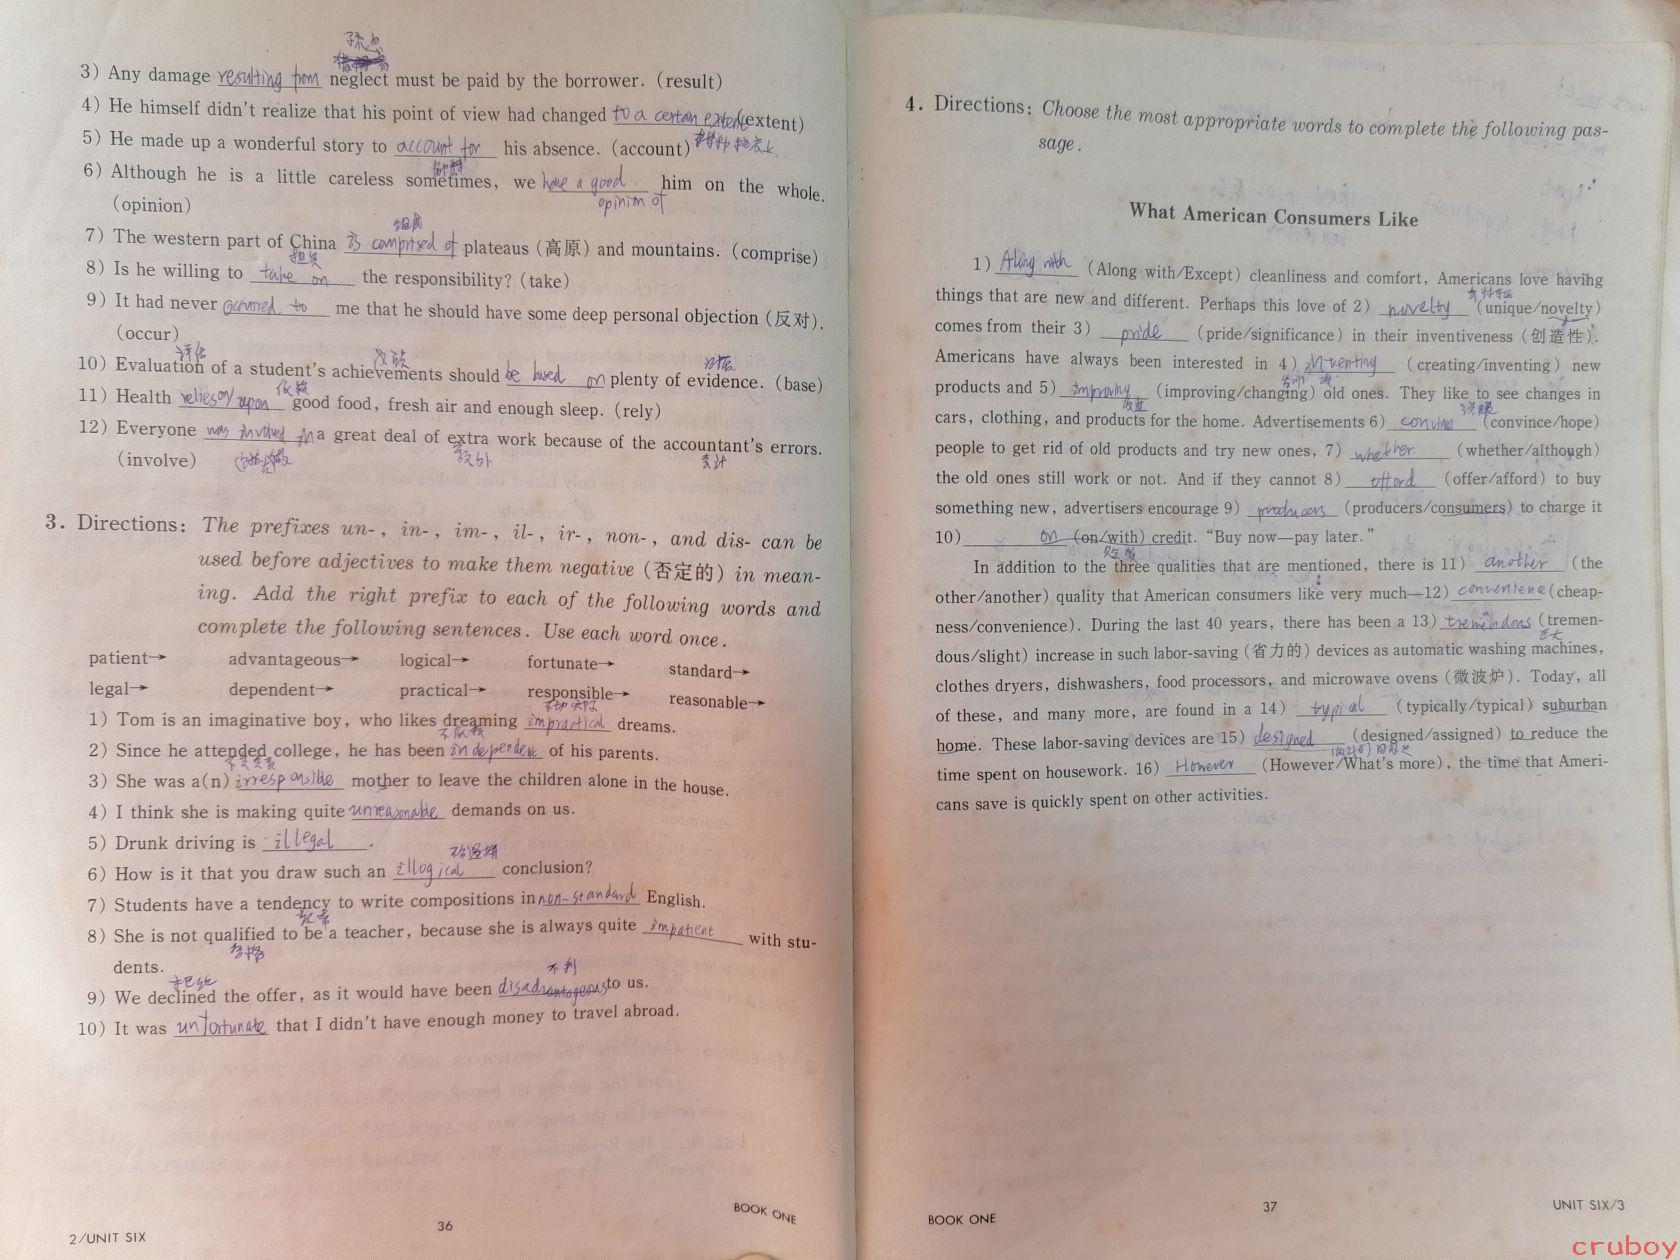 疏忽
3) Any damage resulting from neglect must be paid by the borrower. (result)
4) He himself didn't realize that his point of view had changed to a certain extent (extent)
5) He made up a wonderful story to account for his absence. (account)
6) Although he is a little careless sometimes, we have a good him on the whole.
(opinion) opinion of
组成
7) The western part of China is comprised of plateaus (高原) and mountains. (comprise)
担负
8) Is he willing to take on the responsibility? (take)
9) It had never occurred to me that he should have some deep personal objection (反对).
(occur)
评估 成就 证据
10) Evaluation of a student's achievements should be based on plenty of evidence. (base)
依赖
11) Health relies on/upon good food, fresh air and enough sleep. (rely)
12) Everyone was involved in a great deal of extra work because of the accountant's errors.
(involve) 额外 会计
3. Directions: The prefixes un-, in-, im-, il-, ir-, non-, and dis- can be
used before adjectives to make them negative (否定的) in mean-
ing. Add the right prefix to each of the following words and
complete the following sentences. Use each word once.
patient→ advantageous→ logical→ fortunate→ standard→
legal→ dependent→ practical→ responsible→ reasonable→
不切实际
1) Tom is an imaginative boy, who likes dreaming impractical dreams.
不依赖
2) Since he attended college, he has been independent of his parents.
不负责
3) She was a(n) irresponsible mother to leave the children alone in the house.
4) I think she is making quite unreasonable demands on us.
5) Drunk driving is illegal.
不合逻辑
6) How is it that you draw such an illogical conclusion?
7) Students have a tendency to write compositions in non-standard English.
8) She is not qualified to be a teacher, because she is always quite impatient with stu-
合格
dents.
拒绝 不利
9) We declined the offer, as it would have been disadvantageous to us.
10) It was unfortunate that I didn't have enough money to travel abroad.
2/UNIT SIX 36 BOOK ONE
4. Directions: Choose the most appropriate words to complete the following pas-
sage.
What American Consumers Like
1) Along with (Along with/Except) cleanliness and comfort, Americans love having
things that are new and different. Perhaps this love of 2) novelty (unique/novelty)
comes from their 3) pride (pride/significance) in their inventiveness (创造性).
Americans have always been interested in 4) inventing (creating/inventing) new
products and 5) improving (improving/changing) old ones. They like to see changes in
改进 说服
cars, clothing, and products for the home. Advertisements 6) convince (convince/hope)
people to get rid of old products and try new ones, 7) whether (whether/although)
the old ones still work or not. And if they cannot 8) afford (offer/afford) to buy
something new, advertisers encourage 9) producers (producers/consumers) to charge it
10) on (on/with) credit. "Buy now—pay later."
In addition to the three qualities that are mentioned, there is 11) another (the
other/another) quality that American consumers like very much—12) convenience (cheap-
ness/convenience). During the last 40 years, there has been a 13) tremendous (tremen-
巨大
dous/slight) increase in such labor-saving (省力的) devices as automatic washing machines,
clothes dryers, dishwashers, food processors, and microwave ovens (微波炉). Today, all
of these, and many more, are found in a 14) typical (typically/typical) suburban
home. These labor-saving devices are 15) designed (designed/assigned) to reduce the
time spent on housework. 16) However (However/What's more), the time that Ameri-
cans save is quickly spent on other activities.
BOOK ONE 37 UNIT SIX/3
cruboy